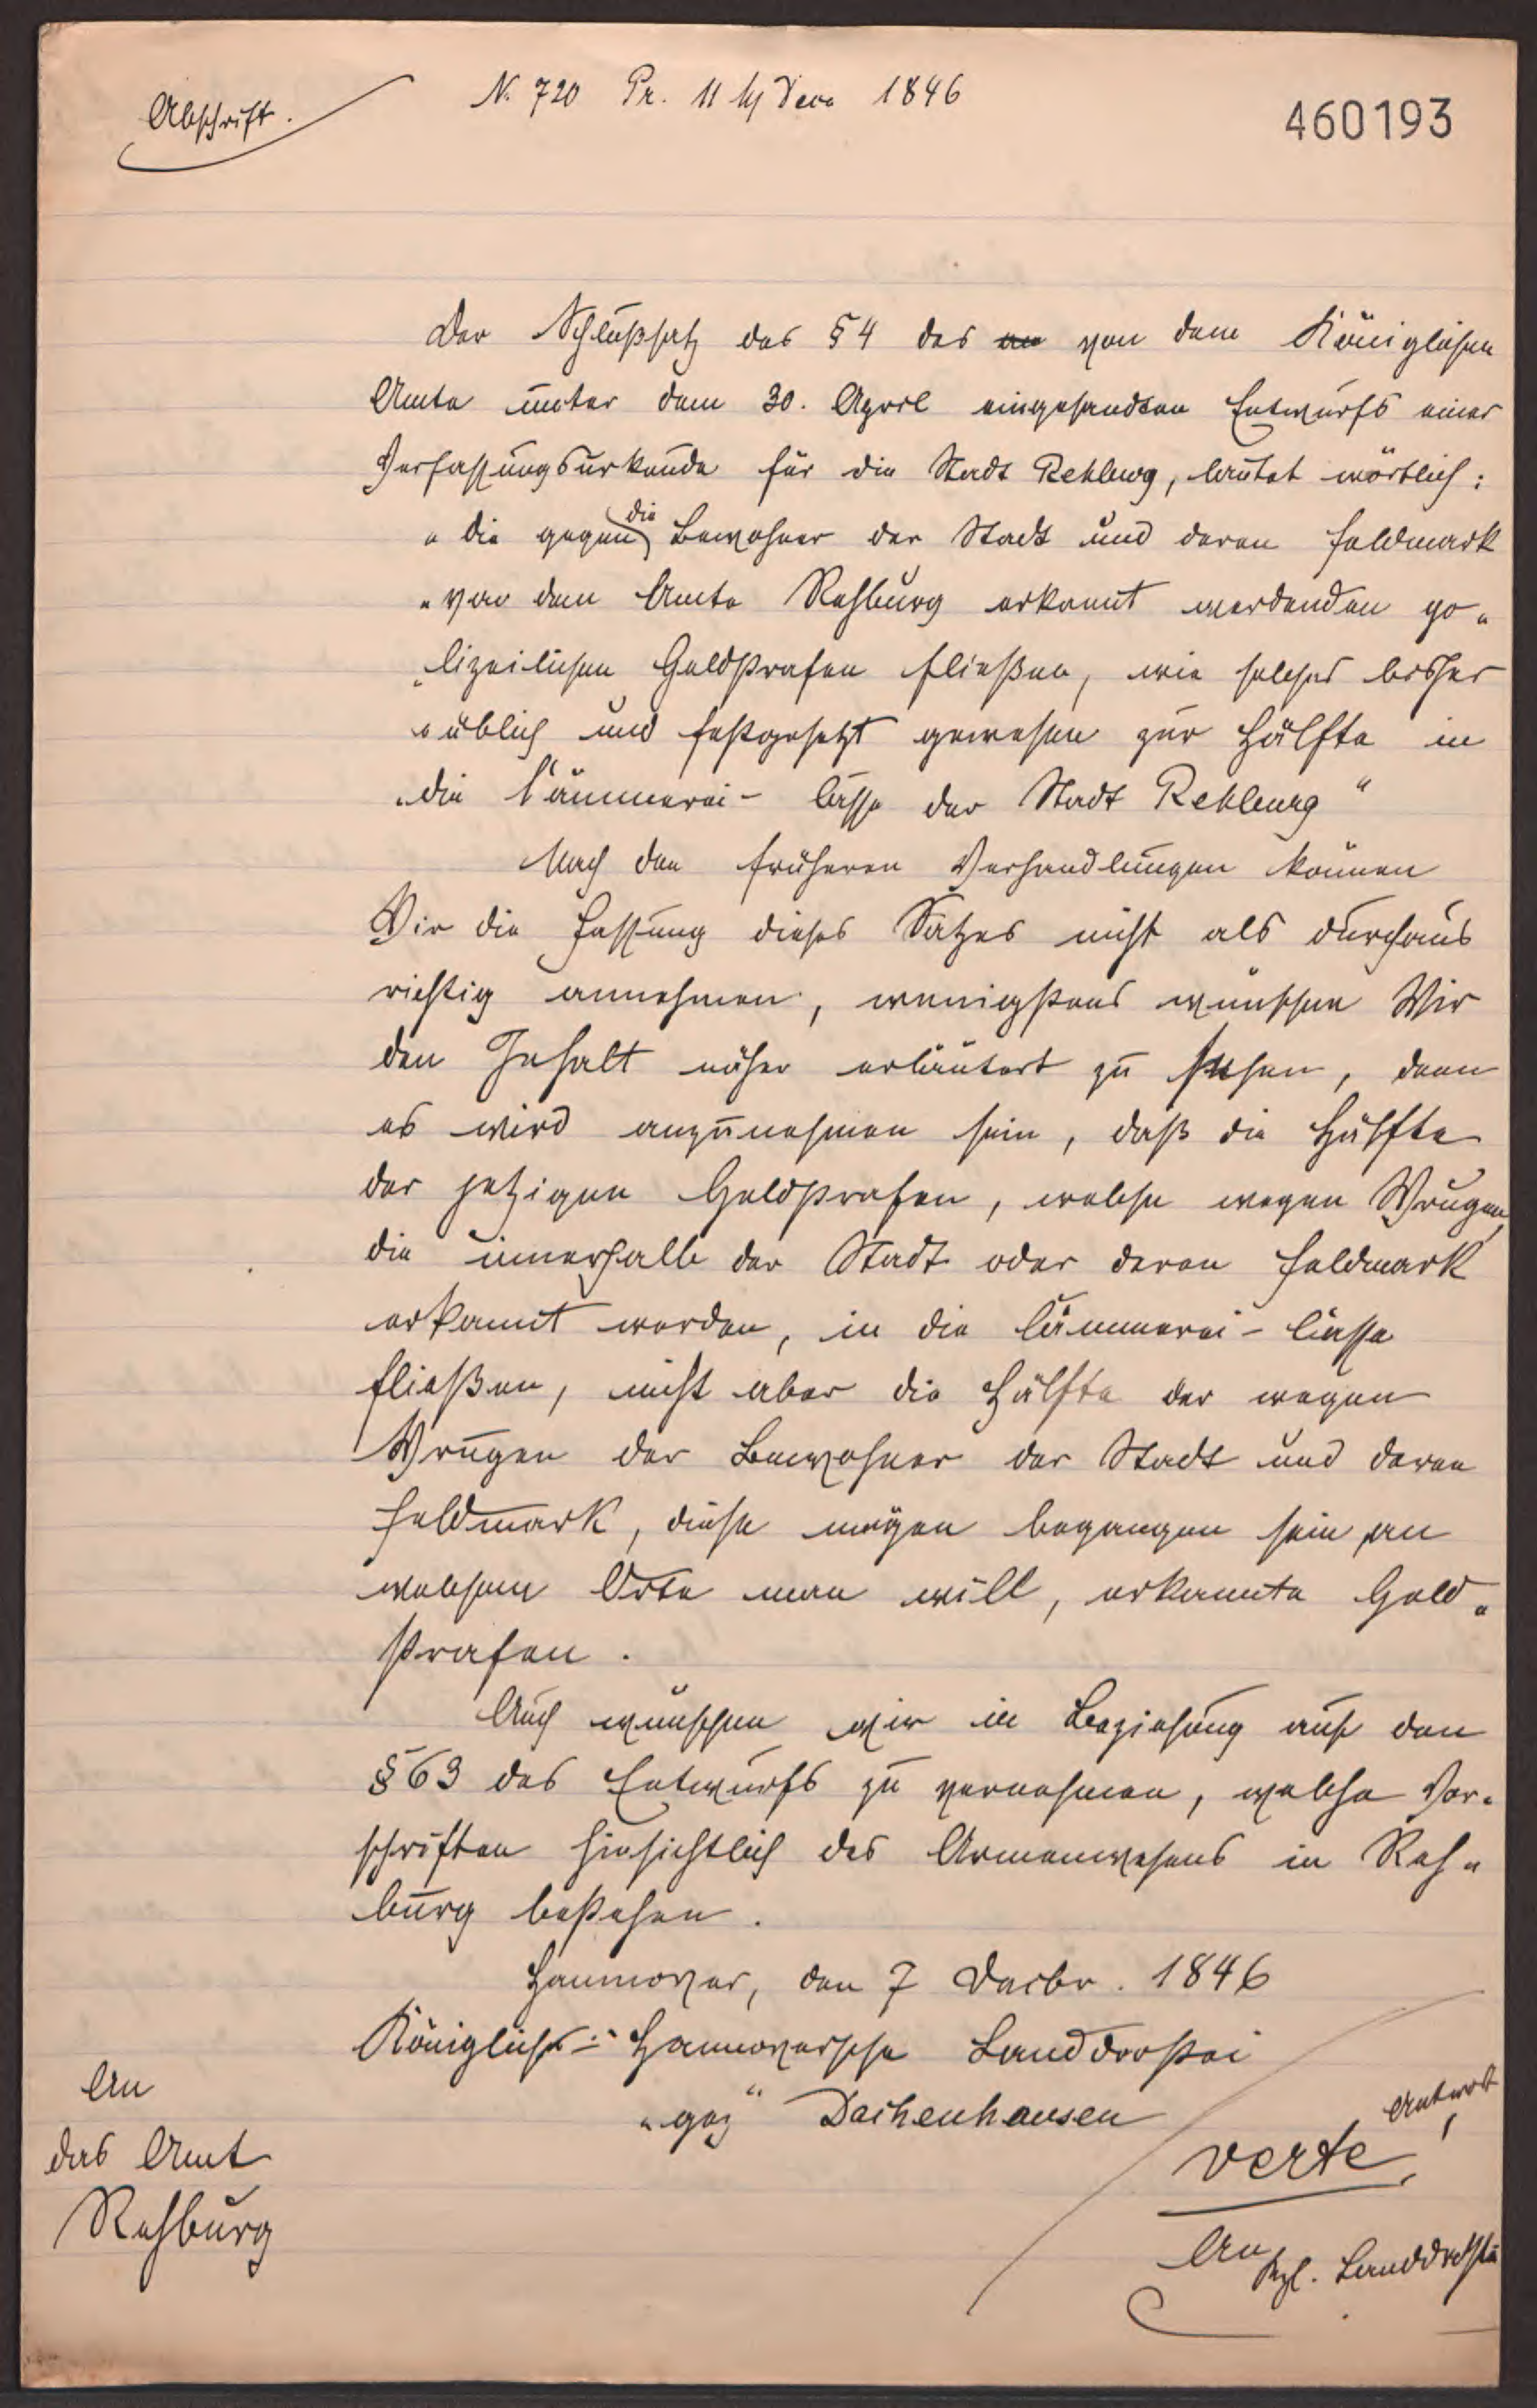 Abschrift.
N. 720 Pr. 11 Dec 1846
460193
Der Schlußsatz des § 4 des von dem Königlichen
Amte unter dem 30. April eingesandten Entwurfs einer
Verfassungsurkunde für die Stadt Rehburg, lautet wörtlich:
„die gegen die Bewohner der Stadt und deren Feldmark
„von dem Amte Rehburg erkannt werdenden po„
„lizeilichen Geldstrafen fließen, wie solches bisher
„üblich und festgesetzt gewesen zur Hälfte in
„die Cämmerei- Casse der Stadt Rehburg"
Nach den früheren Verhandlungen können
Wir die Fassung dieses Satzes nicht als durchaus
richtig annehmen, wenigstens wünschen Wir
den Inhalt näher erläutert zu sehen, denn
es wird anzunehmen sein, daß die Hälfte
der jetzigen Geldstrafen, welche wegen Wrugen,
die innerhalb der Stadt oder deren Feldmark
erkannt werden, in die Cämmerei- Casse
fließen, nicht aber die Hälfte der wegen
Wrugen der Bewohner der Stadt und deren
Feldmark, diese mögen begangen sein an
welchem Orte man will, erkannte Geld„
strafen.
Auch wünschen wir in Beziehung auf den
§ 63 des Entwurfs zu vernehmen, welche Vor„
schriften hinsichtlich des Armenwesens in Reh„
burg bestehen.
Hannover, den 7 Decbr. 1846
Königlich-Hannoversche Landdrostei
„gez" Dachenhausen
An
das Amt
Rehburg
Antwort
verte!
An Kgl. Landdrostei